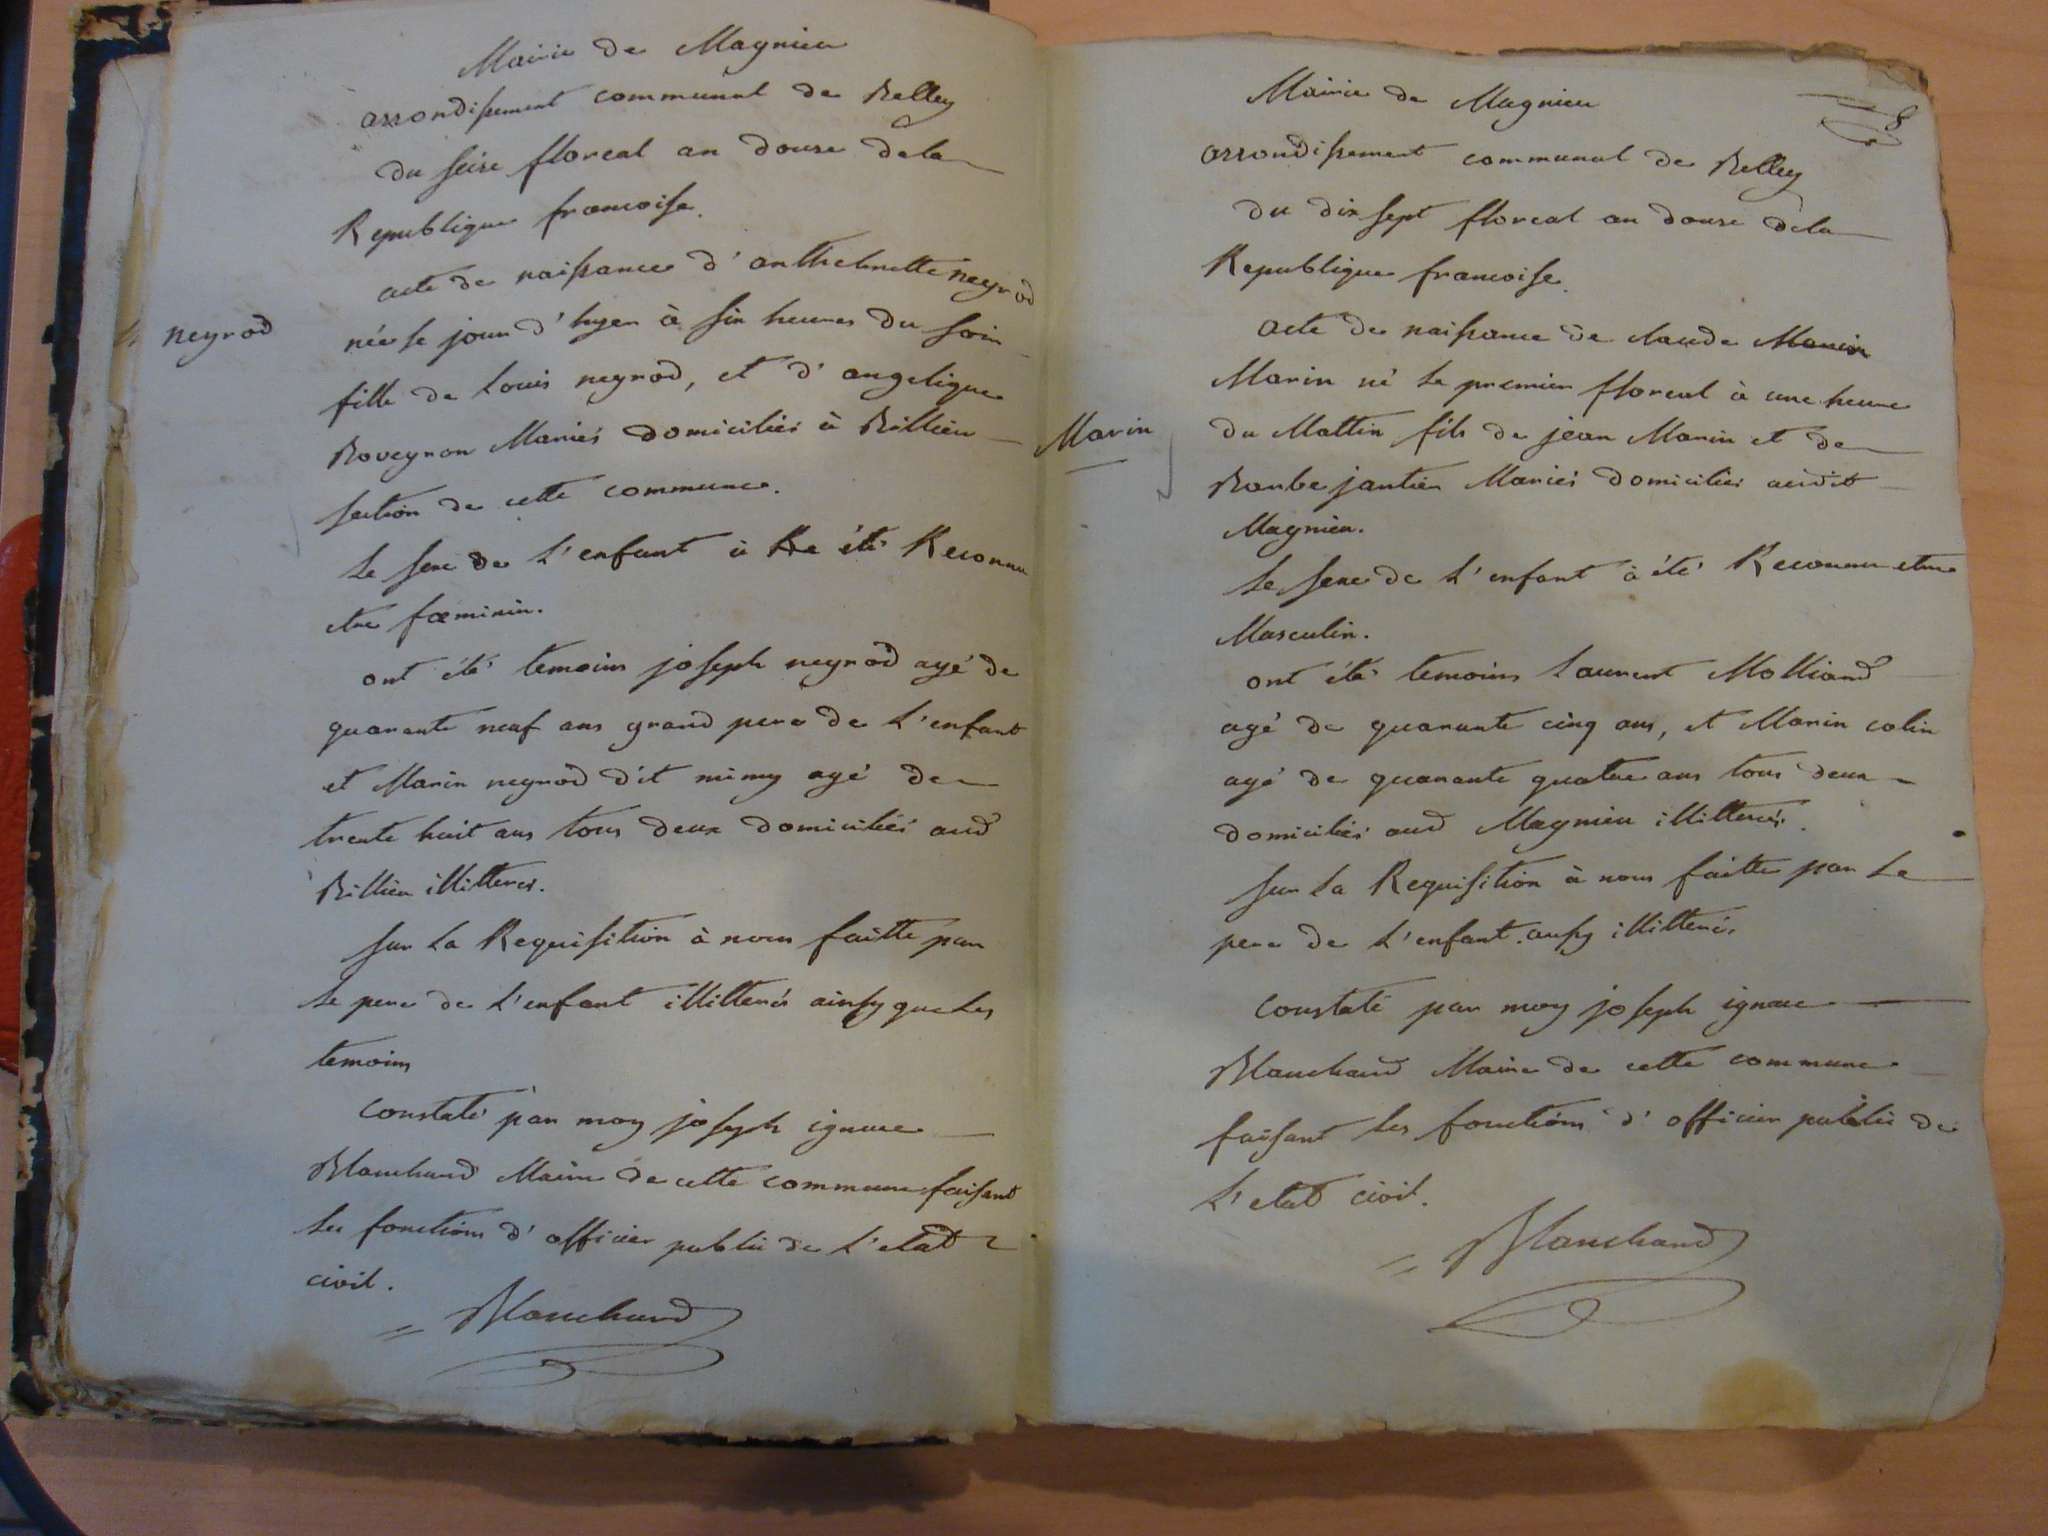 Mairie de Magnieu
arrondissement communal de Belley
du seise floreal an douse dela
Republique francoise.
acte de naissance d'anthelmette neyrod
neyrod
née le jour d'hyer à six heures du soir
fille de Louis neyrod, et d'angelique
Roveyron Mariés domiciliés à Billieu
section de cette commune.
Le sexe de L'enfant à Re été Reconnu
etre fœminin.
ont été temoins joseph neyrod agé de
quarante neuf ans grand pere de L'enfant
et Marin neyrod dit mimy agé de
trente huit ans tous deux domiciliés aud
Billieu illitterés.
sur La Requisition à nous faitte par
Le pere de L'enfant illitterés ainsy que Les
temoins
Constaté par moy joseph ignace
Blanchard Maire de cette commune faisant
Les fonctions d'officier public de L'etat
civil.
Blanchard
8
Mairie de Magnieu
arrondissement communal de Belley
du dix sept floreal an douse dela
Republique francoise.
acte de naissance de claude Marin
Marin
Marin né Le premier floreal à une heure
du Mattin fils de jean Marin et de
Barbe jantier Mariés domiciliés audit
Magnieu.
Le sexe de L'enfant à été Reconnu etre
Masculin.
ont été temoins Laurent Molliand
agé de quarante cinq ans, et Marin colin
agé de quarante quatre ans tous deux
domiciliés aud Magnieu illitterés.
sur La Requisition à nous faitte par Le
pere de L'enfant aussy illitteré.
Constaté par moy joseph ignace
Blanchard Maire de cette commune
faisant Les fonctions d'officier public de
L'etat civil.
Blanchard